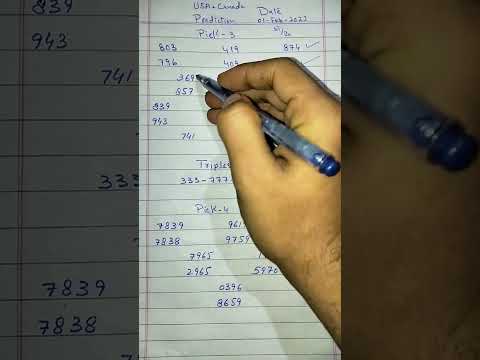 USA + Canada Date
Prediction 01-Feb-2023
Pick-3
803 419 874
796 409
369
857
839
943
741
Triples
333-777
Pick-4
7839 961
7838 9759
7965
2965 5970
0396
8659
839
943
741
333
7839
7838